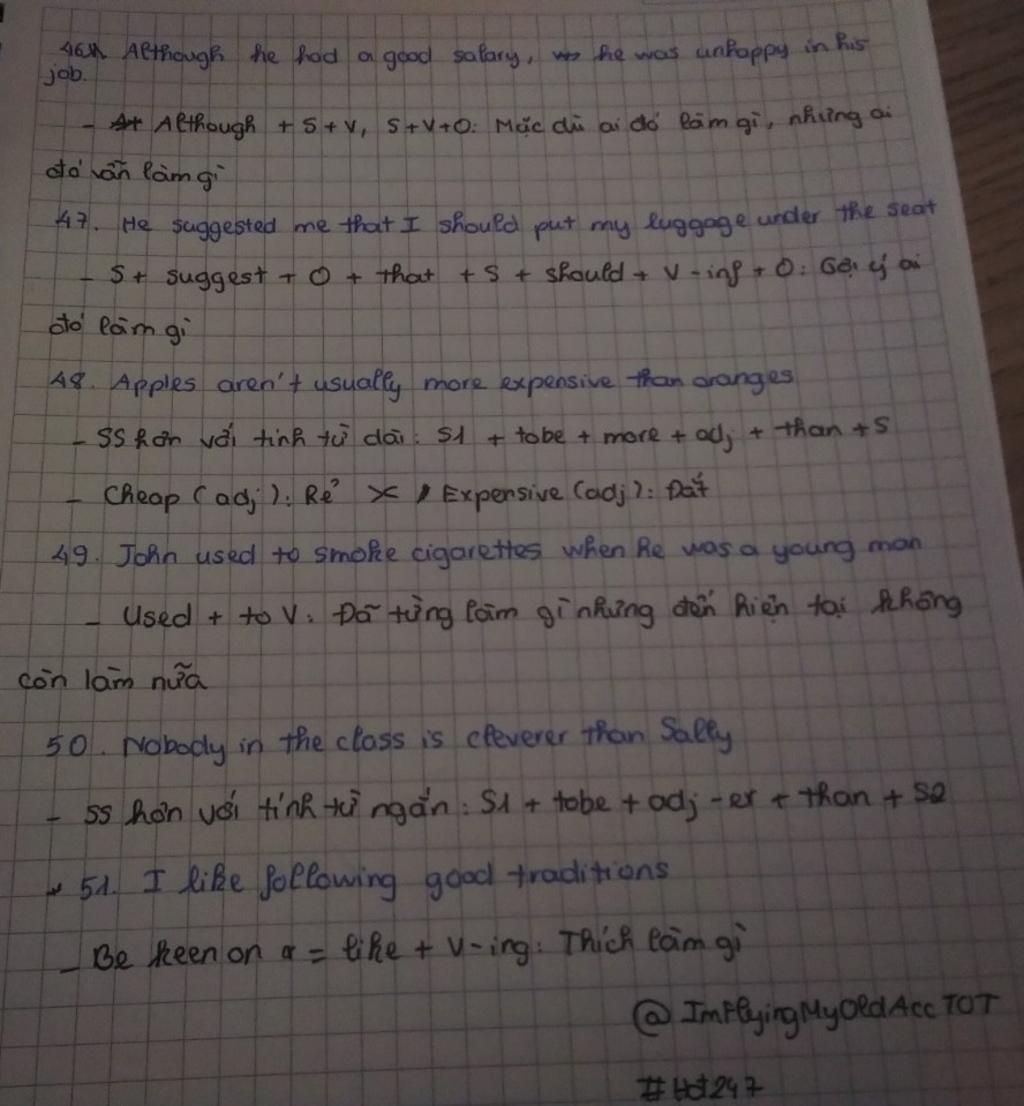 46. Although he had a good salary, he was unhappy in his
job.
- Although + S + V, S + V + O: Mặc dù ai đó làm gì, nhưng ai
đó vẫn làm gì
47. He suggested me that I should put my luggage under the seat
- S + suggest + O + that + S + should + V-inf + O: Gợi ý ai
đó làm gì
48. Apples aren't usually more expensive than oranges
- SS hơn với tính từ dài: S1 + tobe + more + adj + than + S
- Cheap (adj): Rẻ >< Expensive (adj): Đắt
49. John used to smoke cigarettes when he was a young man
- Used + to V: Đã từng làm gì nhưng đến hiện tại không
còn làm nữa
50. Nobody in the class is cleverer than Sally
- SS hơn với tính từ ngắn: S1 + tobe + adj-er + than + S2
51. I like following good traditions
- Be keen on = like + V-ing: Thích làm gì
@ImFlyingMyOldAccTOT